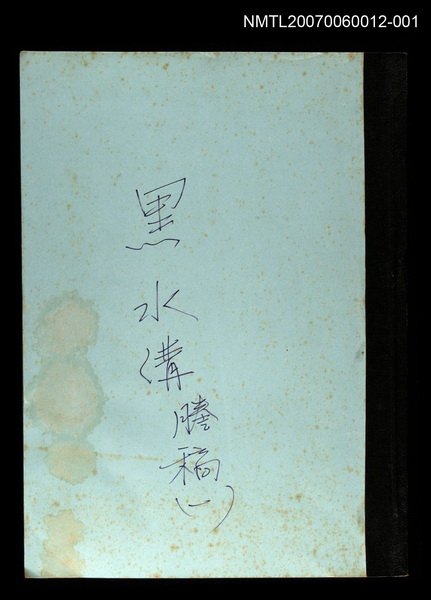 NMTL20070060012-001
黑水溝謄稿(一)